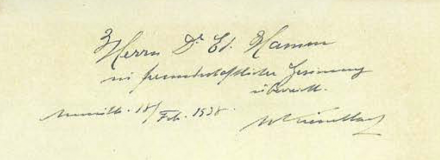 Herrn Dr. Ed. Hamm
in freundschaftlicher Gesinnung
überreicht.
18/ Feb. 1928.